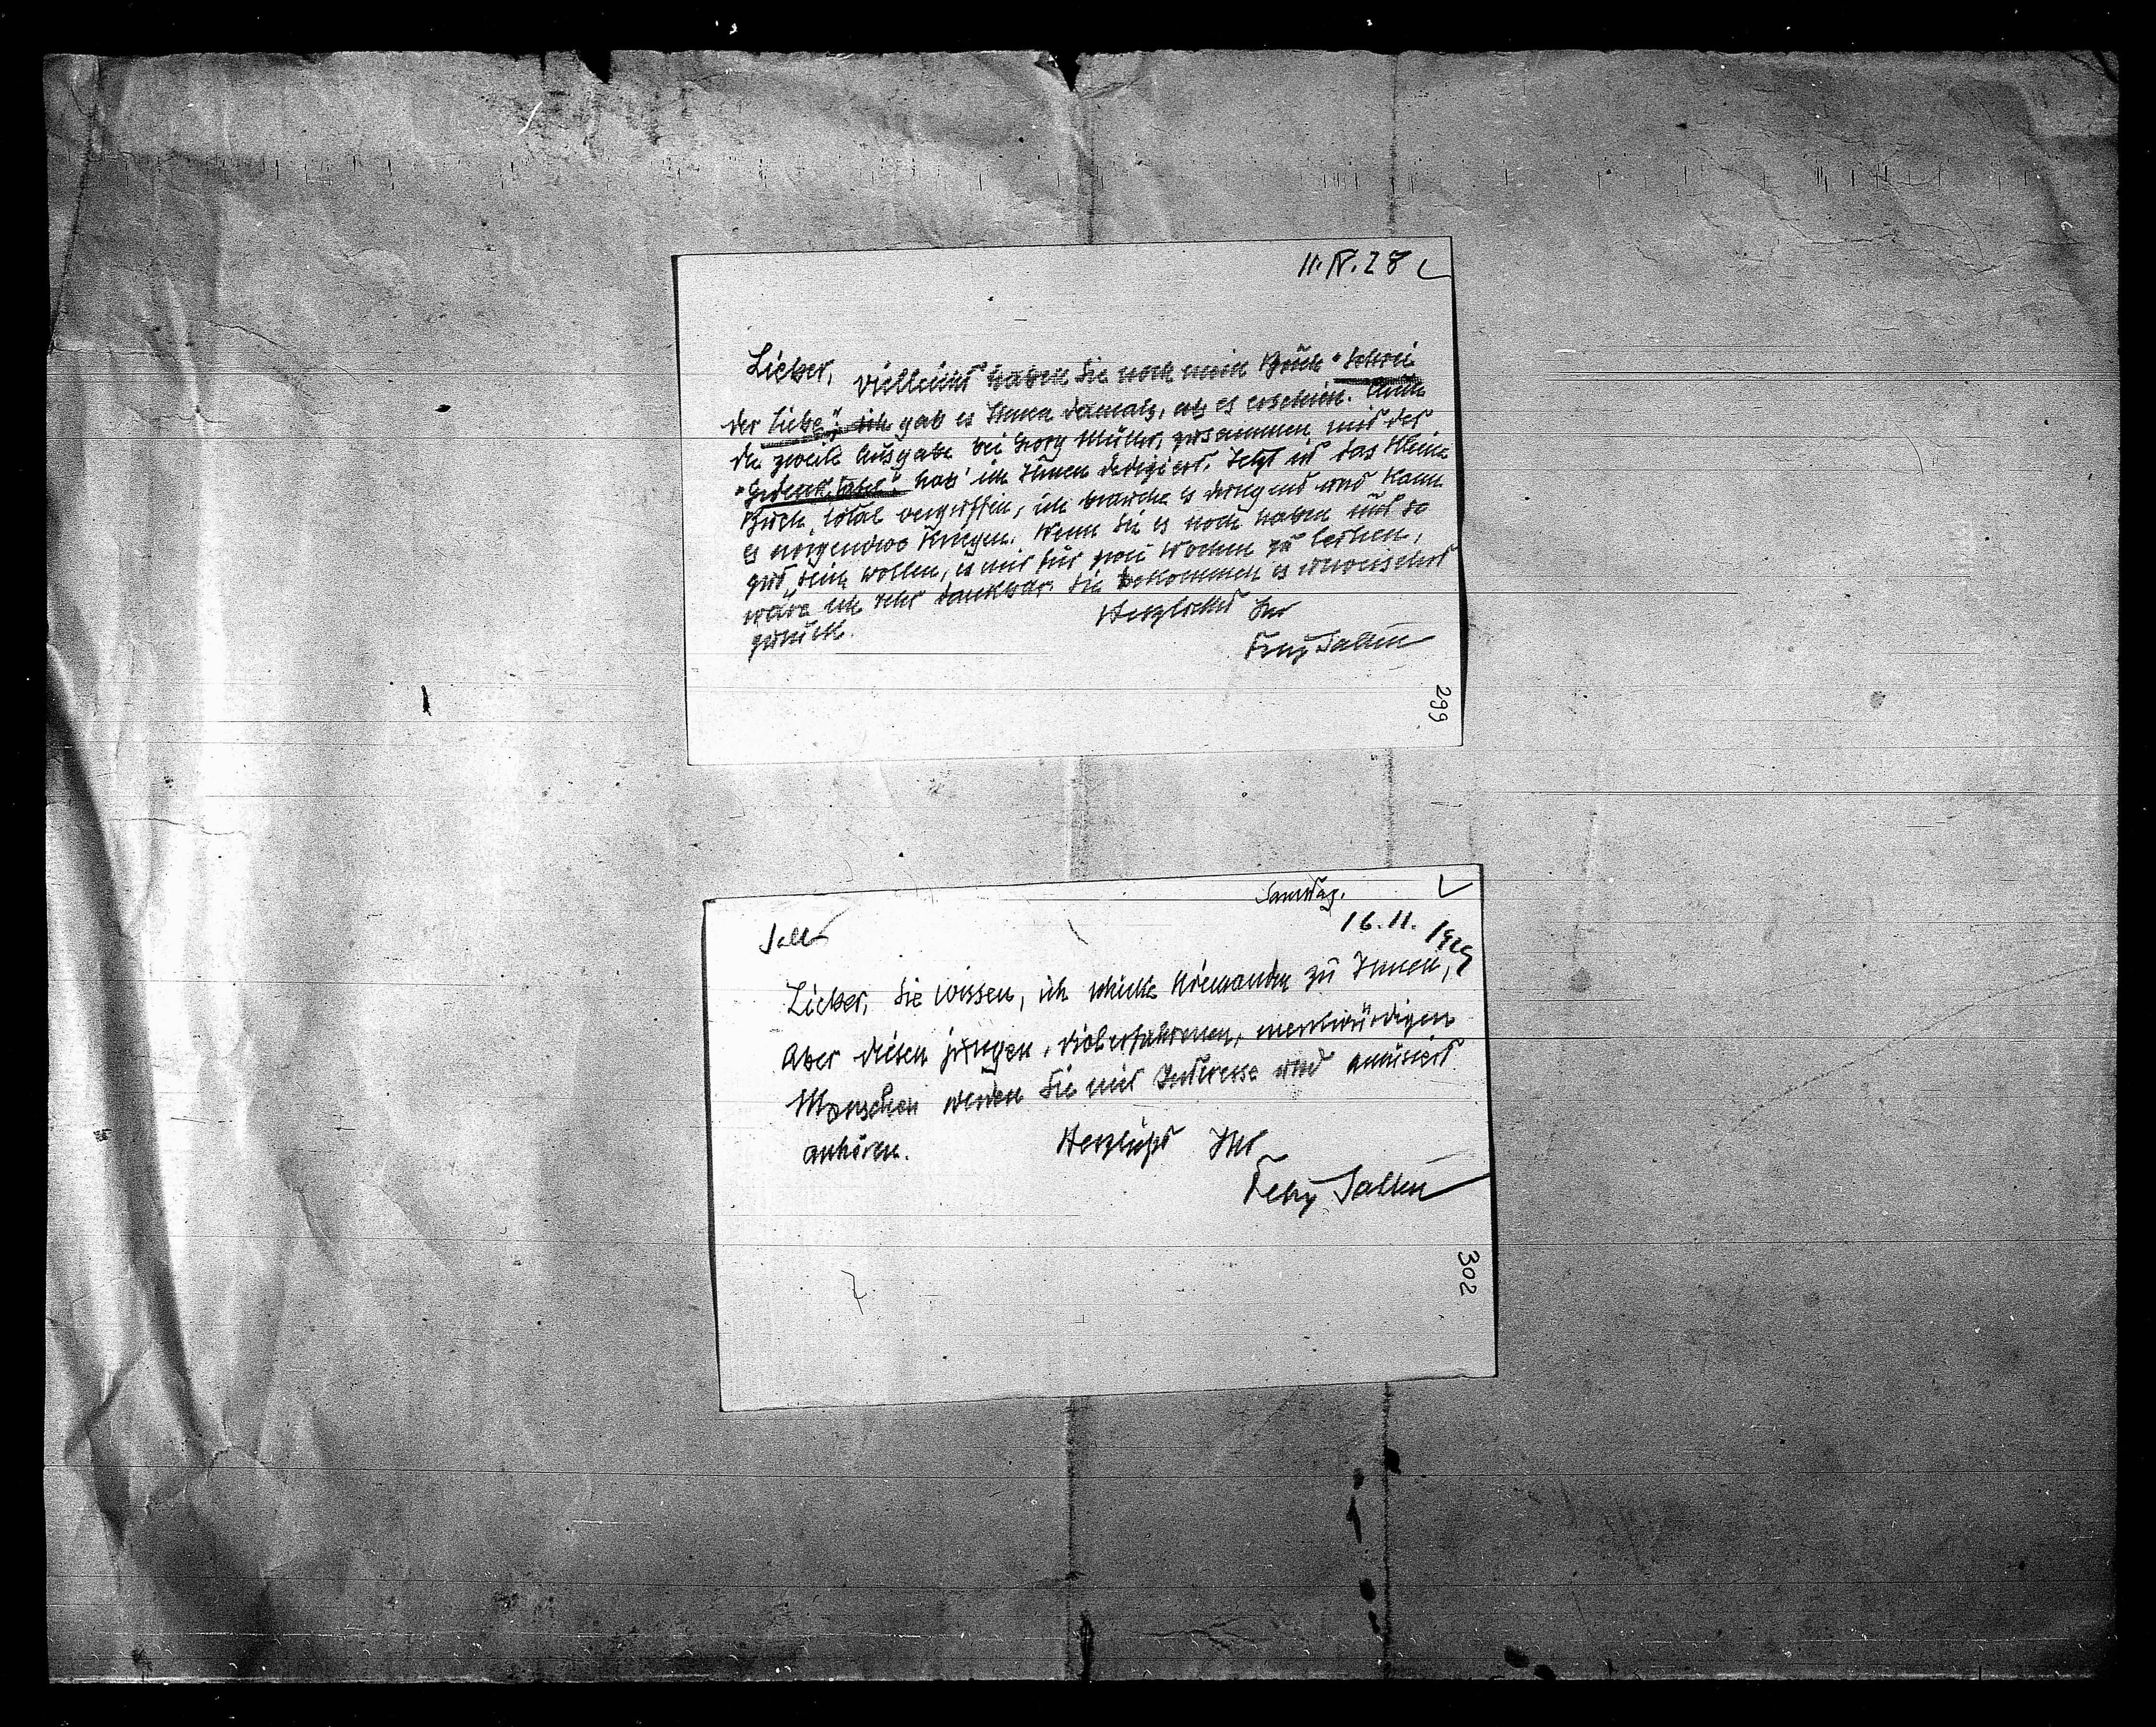 11. IV. 28
Lieber, vielleicht haben Sie noch mein Buch „Schrei
der Liebe", ich gab es Ihnen damals, als es erschien. Auch
die zweite Ausgabe bei Georg Müller, zusammen mit der
„Gedenktafel" hab' ich Ihnen dediziert. Jetzt ist das kleine
Buch total vergriffen, ich brauche es dringend und kann
es nirgendwo kriegen. Wenn Sie es noch haben und so
gut sein wollen, es mir für zwei Wochen zu leihen,
wäre ich sehr dankbar. Sie bekommen es unversehrt
zurück.
Herzlichst Ihr
Felix Salten
299
Samstag.
16.11. 1929
Salt
Lieber, Sie wissen, ich schicke Niemanden zu Ihnen,
aber diesen jungen, vielerfahrenen, merkwürdigen
Menschen werden Sie mit Interesse und amüsiert
anhören.
Herzlichst Ihr
Felix Salten
302